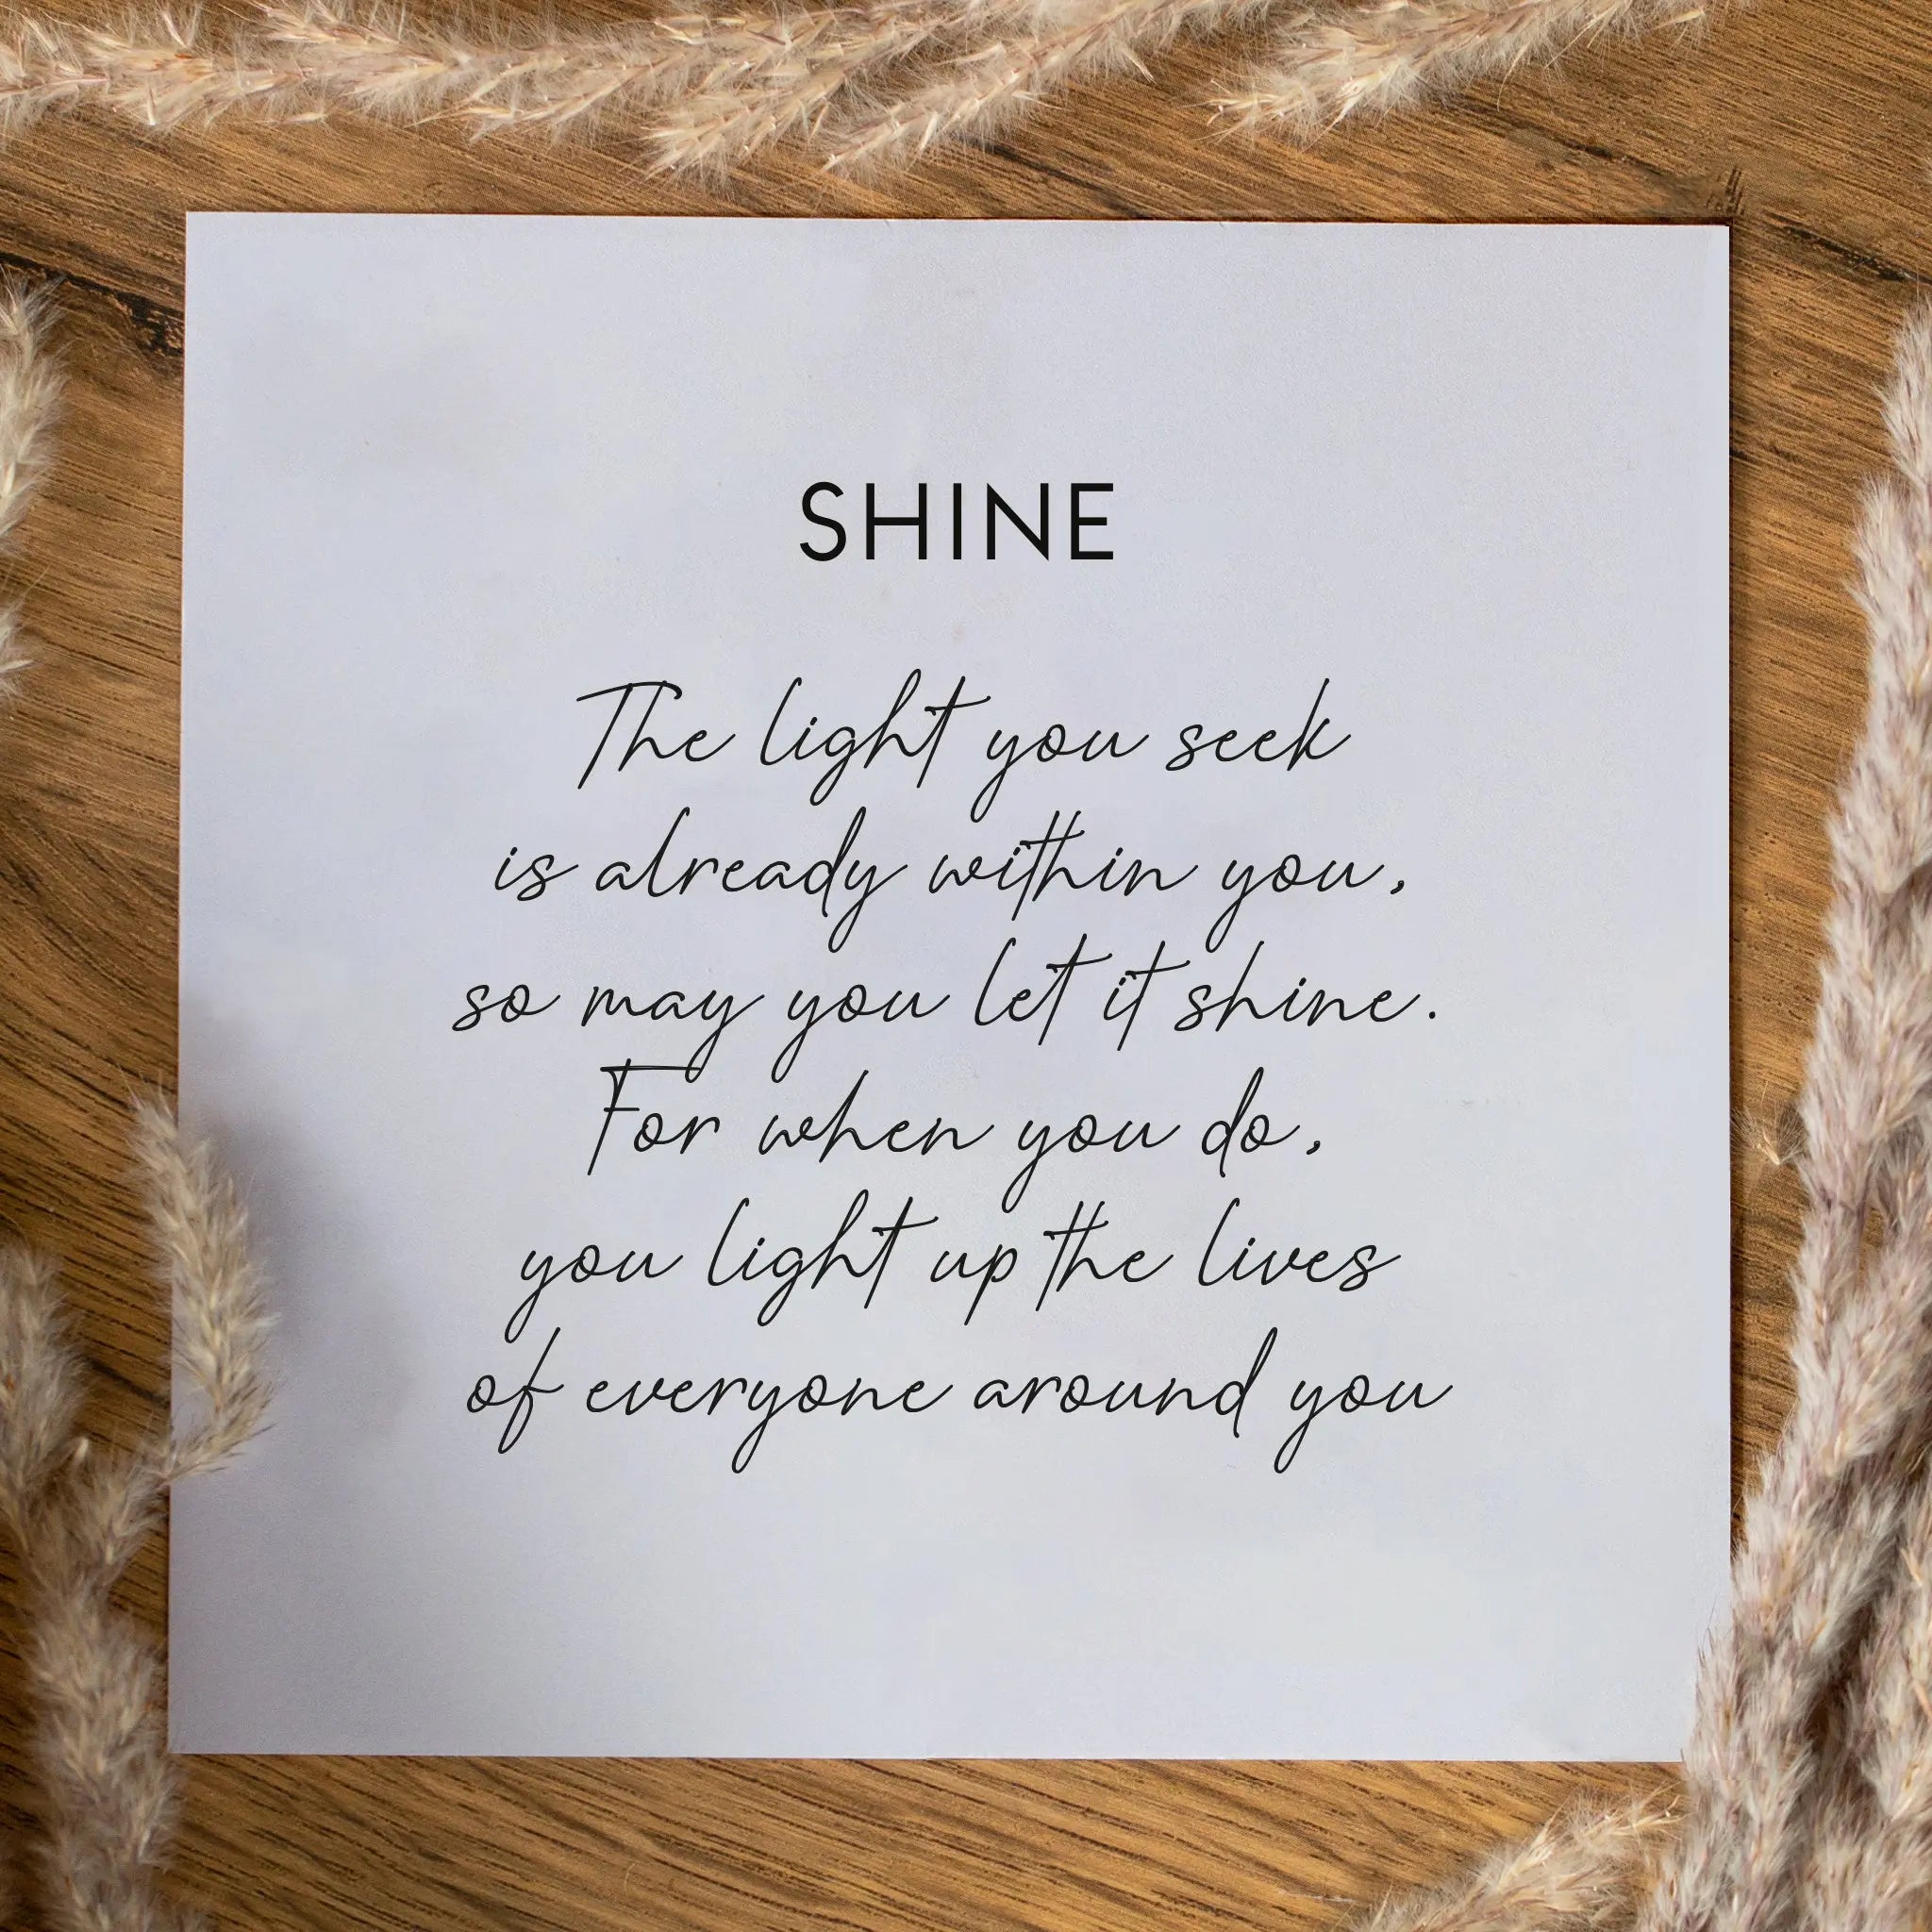 SHINE
The light you seek
is already within you,
so may you let it shine.
For when you do,
you light up the lives
of everyone around you